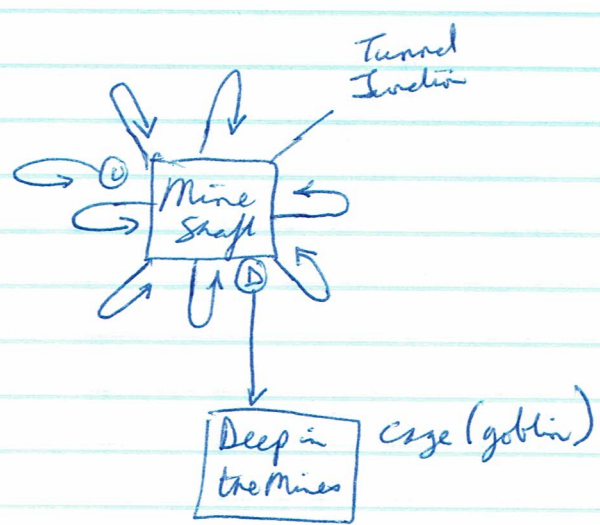 Tunnel
Junction
U
Mine
Shaft
D
Deep in
the Mines
cage (goblin)